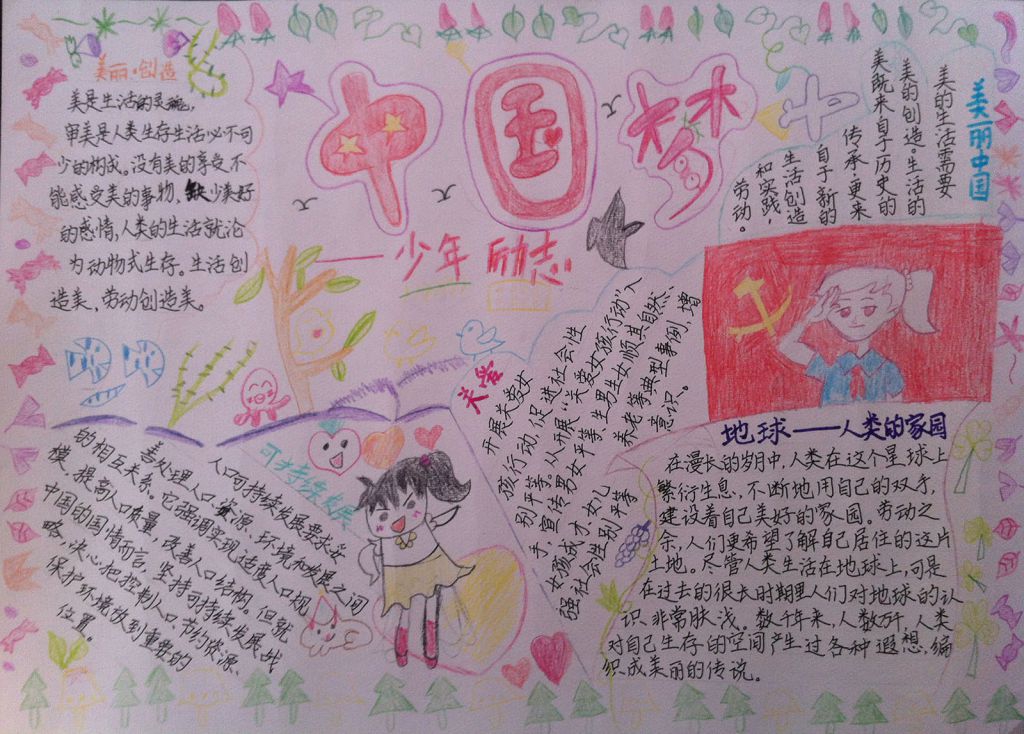 中国梦
——少年励志
美丽·创造
美是生活的灵魂，
审美是人类生存生活必不可
少的构成。没有美的享受，不
能感受美的事物，缺少美好
的感情，人类的生活就沦
为动物式生存。生活创
造美，劳动创造美。
美丽中国
美的生活需要
美的创造。生活的
美既来自于历史的
传承，更来
自于新的
生活创造
和实践，
劳动。
关爱
开展关爱女
孩行动，促进社会性
别平等。从开展“关爱女孩行动”入
手，宣传男女平等，生男生女顺其自然、
女孩成才、女儿养老等典型事例，增
强社会性别平等意识。
可持续发展
人口可持续发展要求妥
善处理人口、资源、环境和发展之间
的相互关系。它强调实现适度人口规
模、提高人口质量，改善人口结构。但就
中国的国情而言，坚持可持续发展战
略，决心把控制人口、节约资源、
保护环境放到重要的
位置。
地球——人类的家园
在漫长的岁月中，人类在这个星球上
繁衍生息，不断地用自己的双手，
建设着自己美好的家园。劳动之
余，人们更希望了解自己居住的这片
土地。尽管人类生活在地球上，可是
在过去的很长时期里人们对地球的认
识非常肤浅。数千年来，人类
对自己生存的空间产生过各种遐想，编
织成美丽的传说。